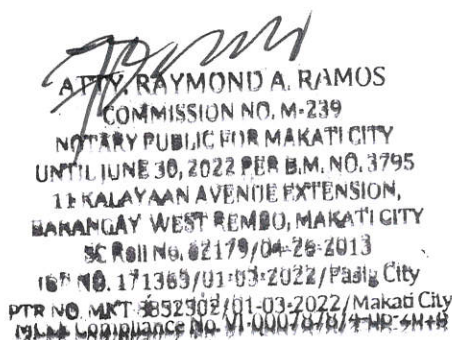 ATTY. RAYMOND A. RAMOS
COMMISSION NO. M-239
NOTARY PUBLIC FOR MAKATI CITY
UNTIL JUNE 30, 2022 PER B.M. NO. 3795
11 KALAYAAN AVENUE EXTENSION,
BARANGAY WEST REMBO, MAKATI CITY
SC Roll No. 62179/04-26-2013
NO. 171365/01-03-2022/Pasig City
PTR NO. MKT 8852902/01-03-2022/Makati City
Compliance No. VI-0007878/4-